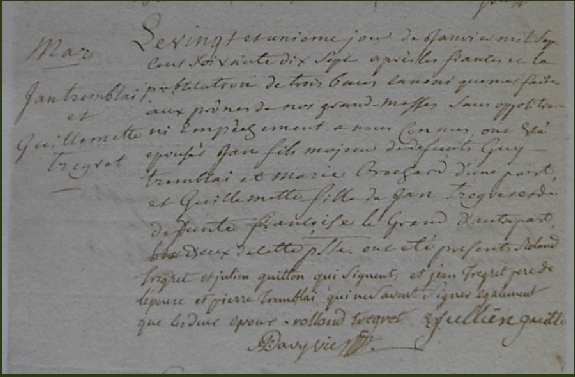 Mar
Jan tremblai
et
Guillemette
tregret
Le vingt et unieme jour de janvier mil sept
cens soixante dix sept après les fiances et la
publication de trois bans canoniquement faite
aux prônes de nos grand-messes sans opposition
ni Empêchement a nous Connus, ont été
epousés Jan fils majeur de defunts Guy
tremblai et marie Brochard d'une part,
et Guillemette fille de Jan Tregret et de
defunte françoise le Grand d'autre part
tous deux de cette psse. ont été présents Roland
Tregret et julien guitton qui signent, et jean Tregret pere de
lepouse et pierre Tremblai qui ne savent signer egalement
que lesdits epoux - rolland tregret Jullien guitton
Davy vic